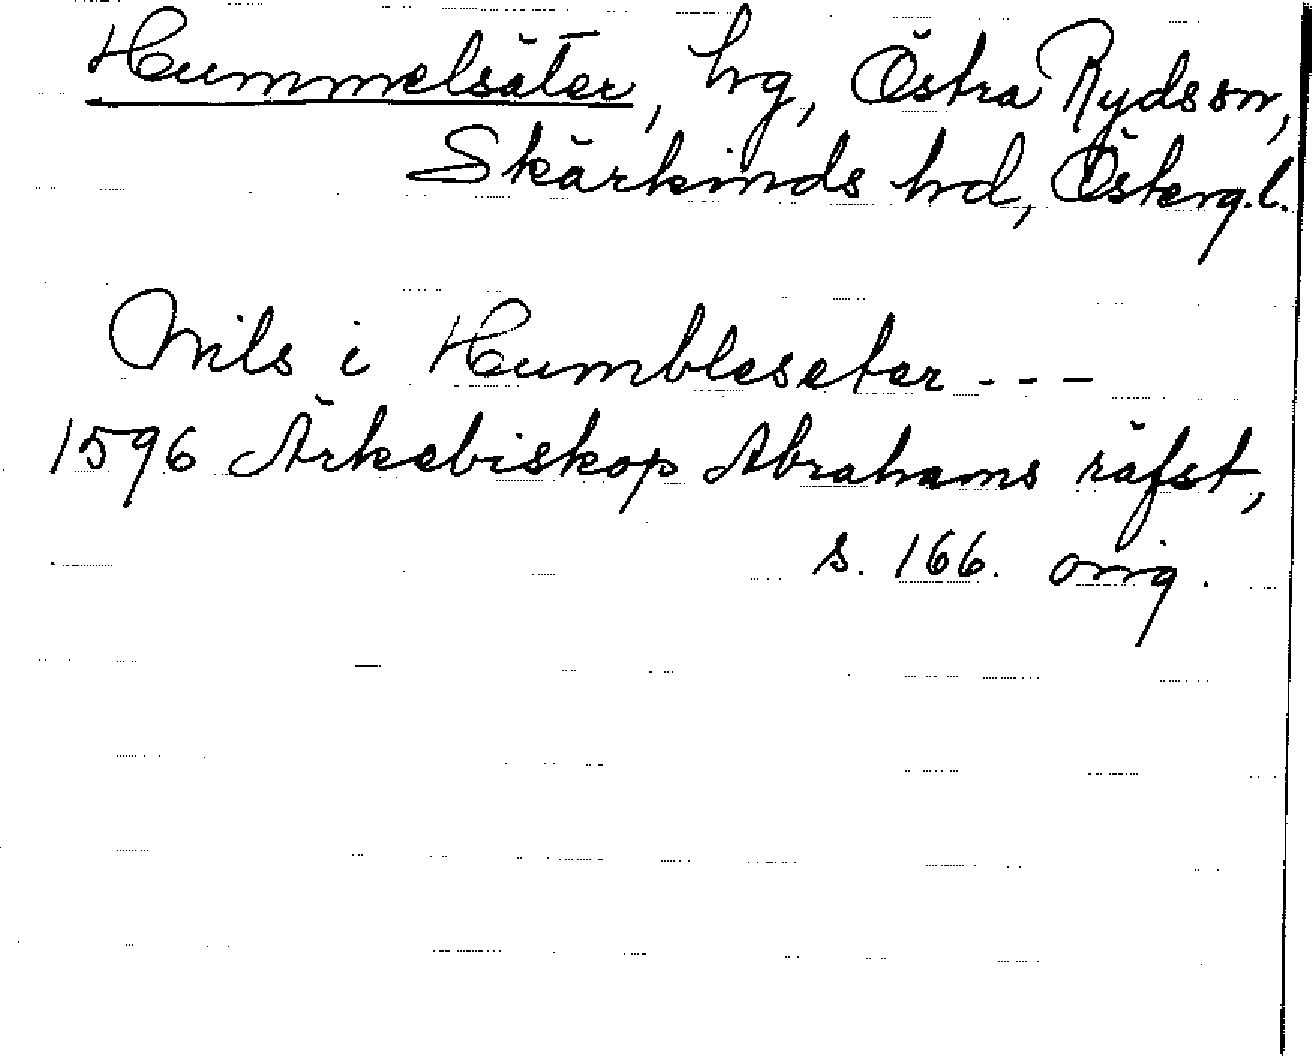 Hummelsäter, hg, Östra Ryds sn,
Skärkinds hd, Österg.l.
Nils i Humbleseter - - -
1596 Ärkebiskop Abrahams räfst,
s. 166. orig.